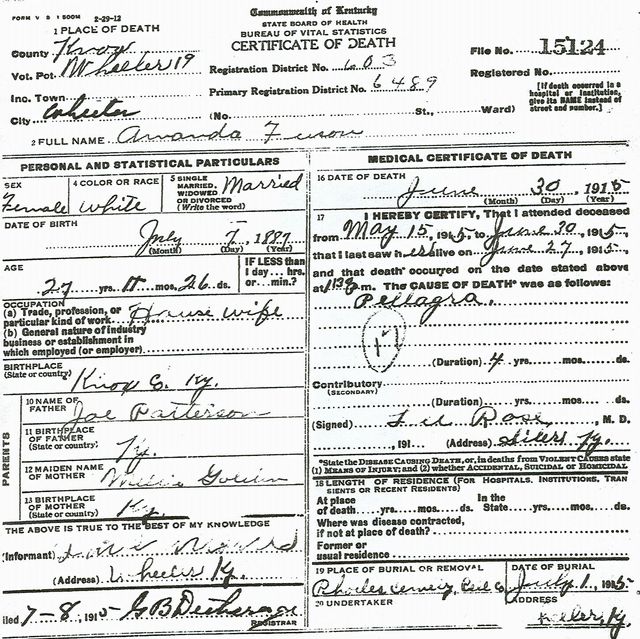 FORM V S 1 500M 2-29-12
Commonwealth of Kentucky
STATE BOARD OF HEALTH
BUREAU OF VITAL STATISTICS
CERTIFICATE OF DEATH
1 PLACE OF DEATH
County Knox
Vot. Pct. Wheeler 19
Inc. Town
City Wheeler
Registration District No. 603
Primary Registration District No. 6489
File No. 15124
Registered No.
[If death occurred in a hospital or institution, give its NAME instead of street and number.]
(No. St., Ward)
2 FULL NAME Amanda Fuson
PERSONAL AND STATISTICAL PARTICULARS
SEX Female
4 COLOR OR RACE White
5 SINGLE MARRIED, WIDOWED OR DIVORCED (Write the word) Married
DATE OF BIRTH
July 7, 1887
(Month) (Day) (Year)
AGE
27 yrs. 11 mos. 26 ds.
IF LESS than 1 day... hrs. or... min.?
OCCUPATION
(a) Trade, profession, or particular kind of work House wife
(b) General nature of industry business or establishment in which employed (or employer)
BIRTHPLACE
(State or country) Knox Co. Ky.
PARENTS
10 NAME OF FATHER Joe Patterson
11 BIRTHPLACE OF FATHER (State or country) Ky.
12 MAIDEN NAME OF MOTHER Millie
13 BIRTHPLACE OF MOTHER Ky
THE ABOVE IS TRUE TO THE BEST OF MY KNOWLEDGE
(Informant)
(Address) Wheeler Ky.
iled 7-8, 1915 G B
REGISTRAR
MEDICAL CERTIFICATE OF DEATH
16 DATE OF DEATH
June 30, 1915
(Month) (Day) (Year)
17 I HEREBY CERTIFY, That I attended deceased
from May 15, 1915, to June 30, 1915,
that I last saw h alive on June 27, 1915,
and that death occurred on the date stated above
at 11 30 p.m. The CAUSE OF DEATH* was as follows:
Pellagra.
1
(Duration) 4 yrs. mos. ds.
Contributory
(SECONDARY)
(Duration) yrs. mos. ds.
(Signed) Rose, M. D.
, 191 (Address) Silers Ky.
*State the DISEASE CAUSING DEATH, or, in deaths from VIOLENT CAUSES state
(1) MEANS OF INJURY; and (2) whether ACCIDENTAL, SUICIDAL or HOMICIDAL
18 LENGTH OF RESIDENCE (FOR HOSPITALS, INSTITUTIONS, TRAN
SIENTS OR RECENT RESIDENTS)
At place of death yrs. mos. ds. In the State yrs. mos. ds.
Where was disease contracted,
if not at place of death?
Former or usual residence
19 PLACE OF BURIAL OR REMOVAL
DATE OF BURIAL
July 1, 1915
20 UNDERTAKER
ADDRESS
Ky.